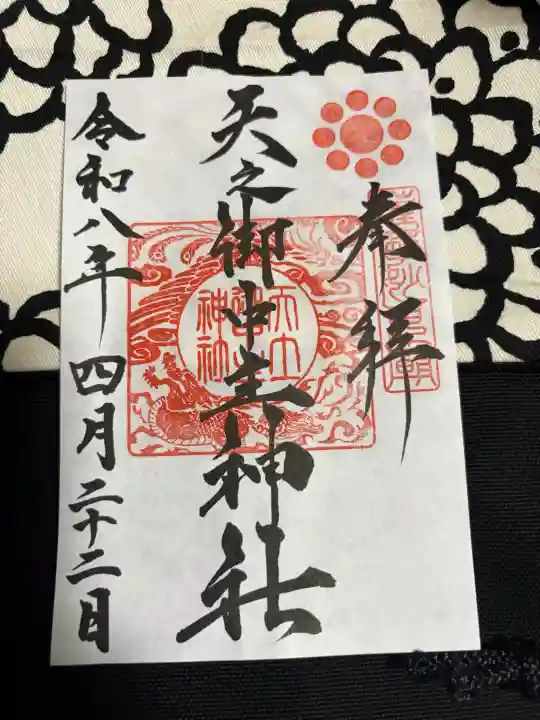 奉拝
天之御中主神社
令和八年四月二十二日
神社